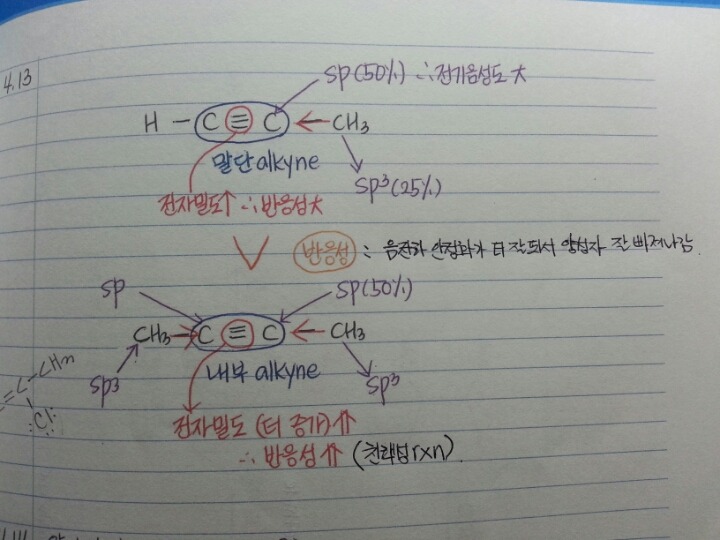 4.13
sp(50%) ∴전기음성도 大
H — C ≡ C ← CH3
말단 alkyne
sp³(25%)
전자밀도↑ ∴반응성大
반응성 : 음전하 안정화가 더 잘되서 양성자 잘 빠져나감.
sp
sp(50%)
CH3 → C ≡ C ← CH3
내부 alkyne
sp3
sp³
전자밀도 (더 증가)⇈
∴ 반응성⇈ (친핵성 rxn)
=C
Cl